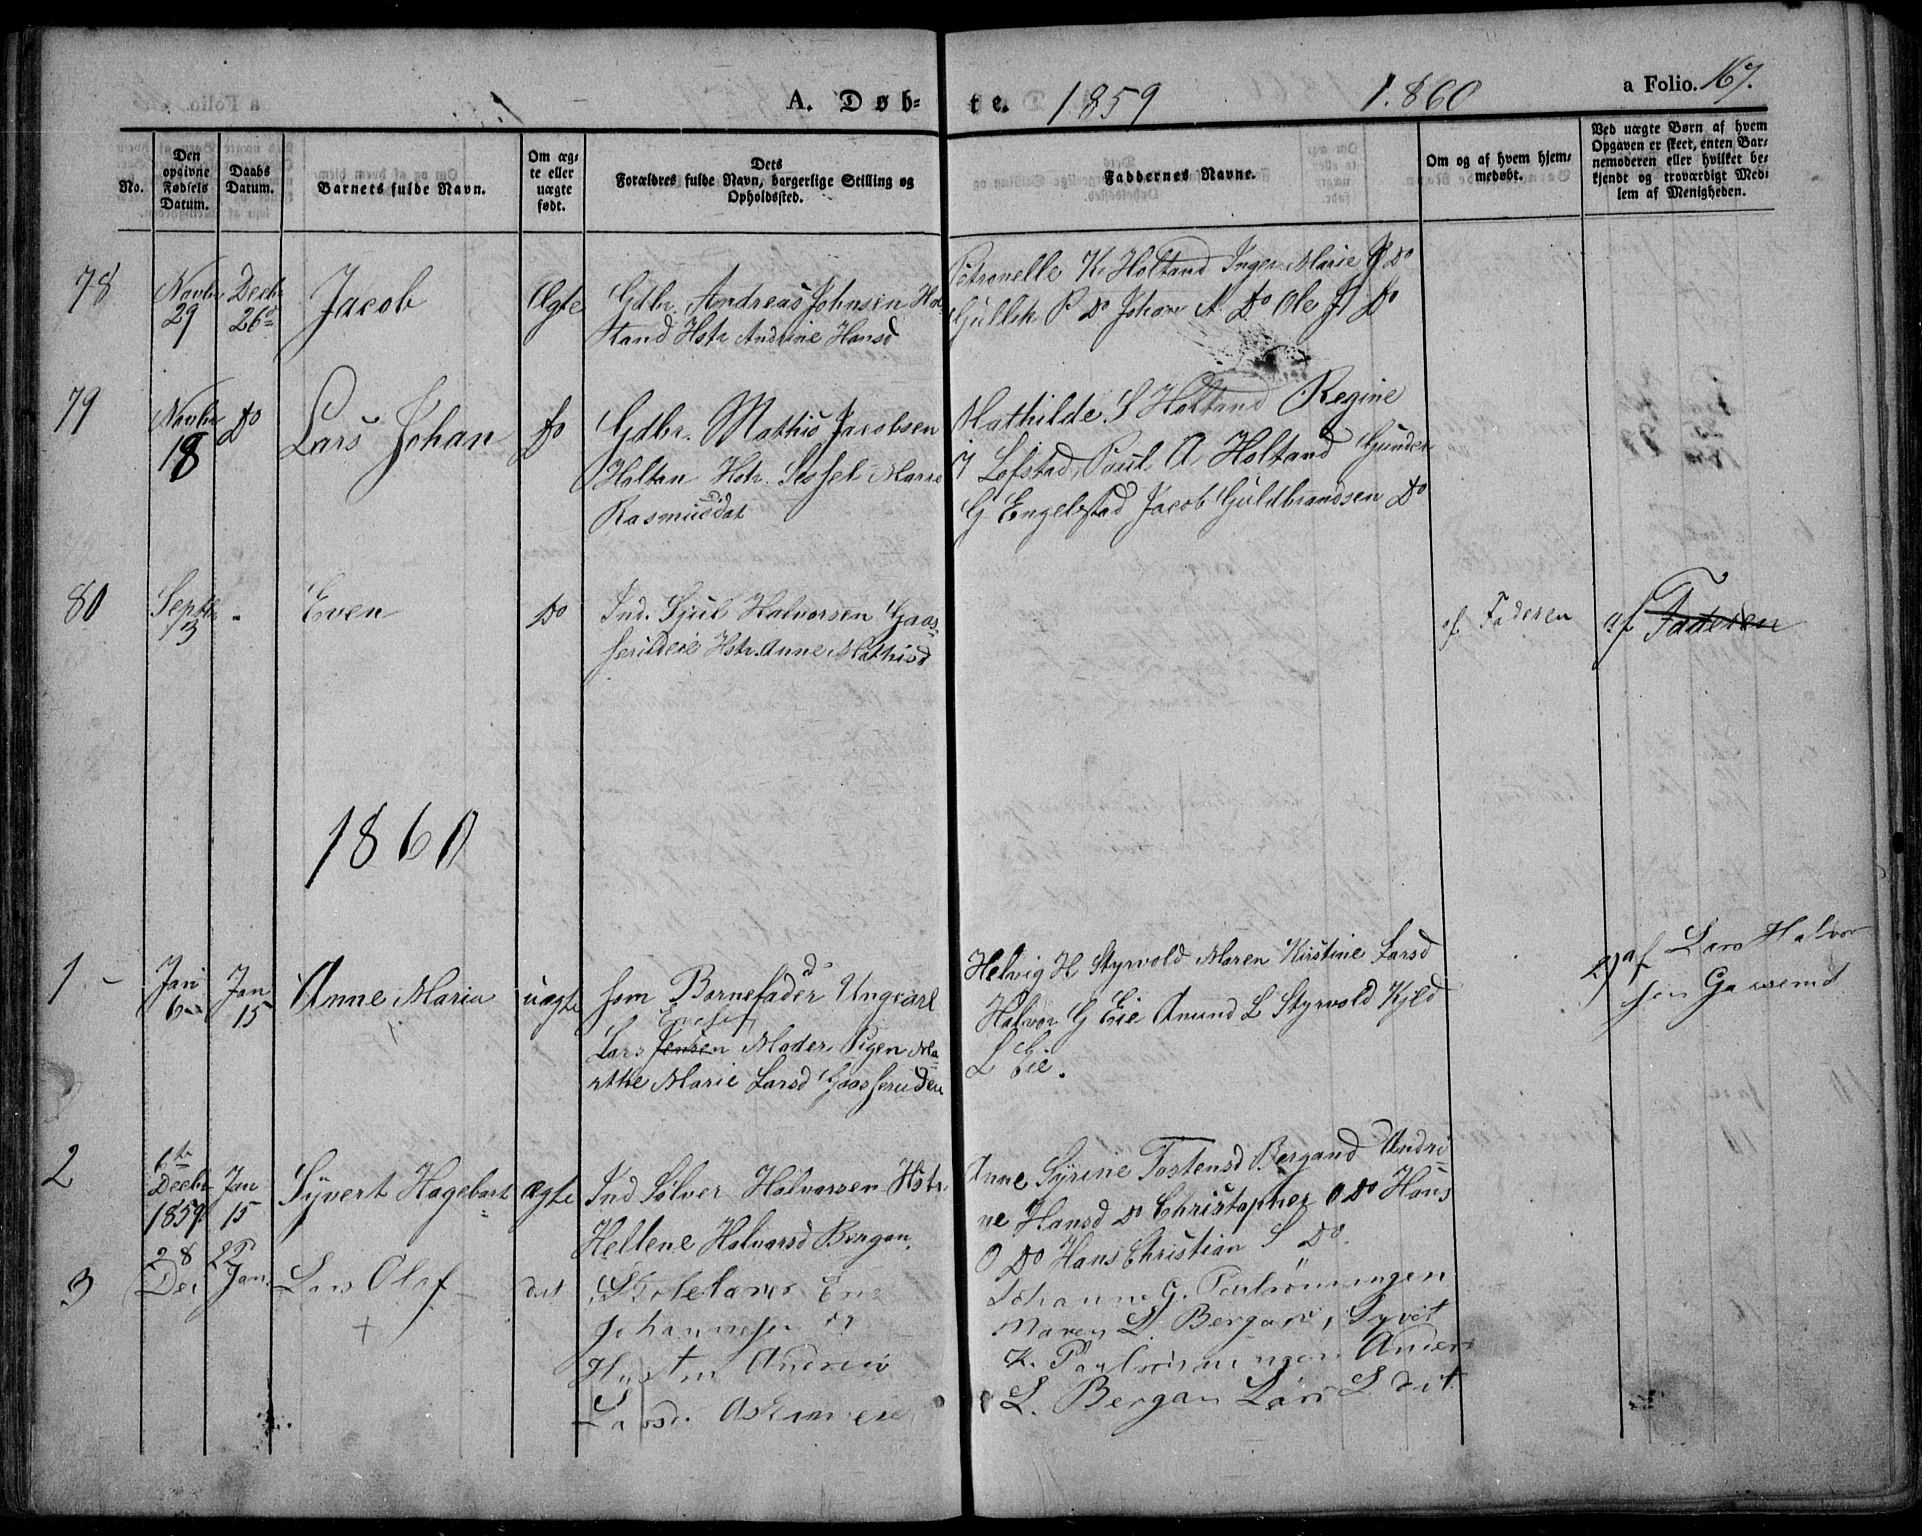 A. Døb-te. 1859 1860 a Folio. 167.
No.
Den opgivne Fødsels Datum.
Daabs Datum.
Barnets fulde Navn.
Om ægte eller uægte født.
Dets Forældres fulde Navn, borgerlige Stilling og Opholdssted.
Faddernes Navne.
Om og af hvem hjemmedøbt.
Ved uægte Børn af hvem
Opgaven er skeet, enten Bar-
nemoderen eller hvilket be-
kjendt og troværdigt Med-
lem af Menigheden.
78 Novbr 29 Decbr 26d Jacob Ægte
Gdbr. Andreas Johnsen Hol-
tand Hstr Andrine Hansd
Petronelle K. Holtand Inger Marie J Do
Gullik P Do Johan A Do Ole J Do
79 Novbr 18 Do Lars Johan Do
Gdbr. Mathis Jacobsen
Holtan Hstr. Sessel Marie
Rasmusdat
Mathilde S Holtand Regine
J Lofstad, Poul A Holtand Gunder
G Engelstad Jacob Guldbrandsen Do
80 Septbr 13 - Even Do
Ind. Sjul Halvorsen Gaas-
serudeie Hstr. Anne Mathisd
af Faderen
af Faderen
1860
1 - Jan 6 Jan 15 Anne Maria uægte
som Barnefader Ungkarl
Lars Jensen Moder Pigen Ma-
rthe Marie Larsd Gaasseruden
Helvig H Styrvold Maren Kirstine Larsd
Halvor G Eie Anund L Styrvold Kjeld
L Eie.
af Lars Halvor
sen
2 6te Decbr 1859 Jan 15 Syvert Hagebart ægte
Ind Sølver Halvorsen Hstr.
Hellene Halvorsd Bergan.
Anne Syrine Tostensd Bergand Andri-
ne Hansd Do Christopher O Do Hans
O Do Hans Christian S Do.
3 28 Dec 22 Jan. Lars Olaf dit
Skolelærer
Johannesen
Hustru
Larsd.
Johanne G.
Maren L. Bergan, Syvert
K. Anders
L. Bergan Lars L dit